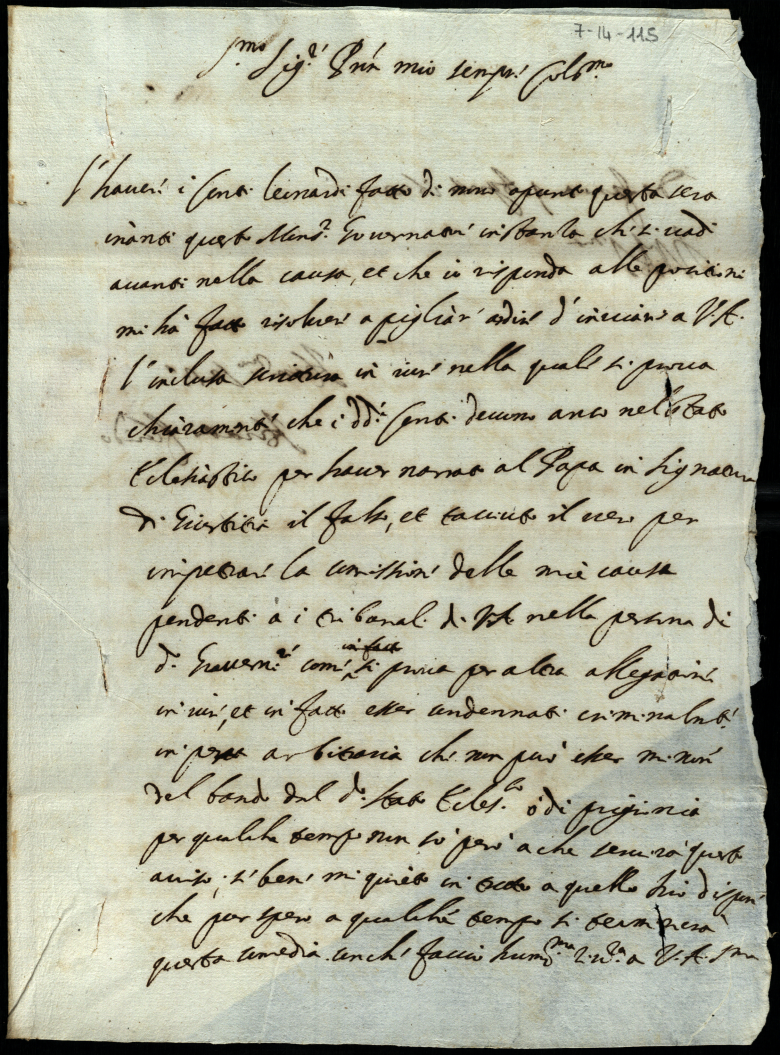 7-14-115
S.mo Sig.r Prñ mio sempre Col.mo
L'havere i Conti Leonardi fatto di novo apunto questa sera
inanti questo Mons.r Governatore instanza che si vadi
avanti nella causa, et che io risponda alle positioni
mi hà fatto risolvere a pigliar ardire d' inviare a V.A.
l'inclusa scrittura in iure nella quale si prova
chiaramente che i dd.i Conti devono anco nel stato
Ecclesiastico per haver narrato al Papa in signatura
di Giustitia il falso, et taciuto il vero per
impetrare la comissione delle mie cause
pendenti a i tribunali di V.A. nella persona di
d.o Governe.re come si prova per altra allegatione
in iure, et in fatto esser condennati criminalmte.
in pena arbitraria che non può esser minore
del bando dal d.o stato Eccles.co ò di prigionia
per qualche tempo non sò però a che servirà questo
aviso, se bene mi quieto in tutto a quello Iddio dispone
che pur spero a qualche tempo si terminerà
questa comedia. con che faccio hum.ma r.za a V.A. S.ma